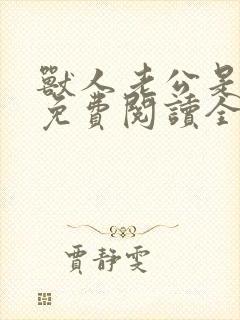 獸人老公是
免費閱讀全
賈靜雯